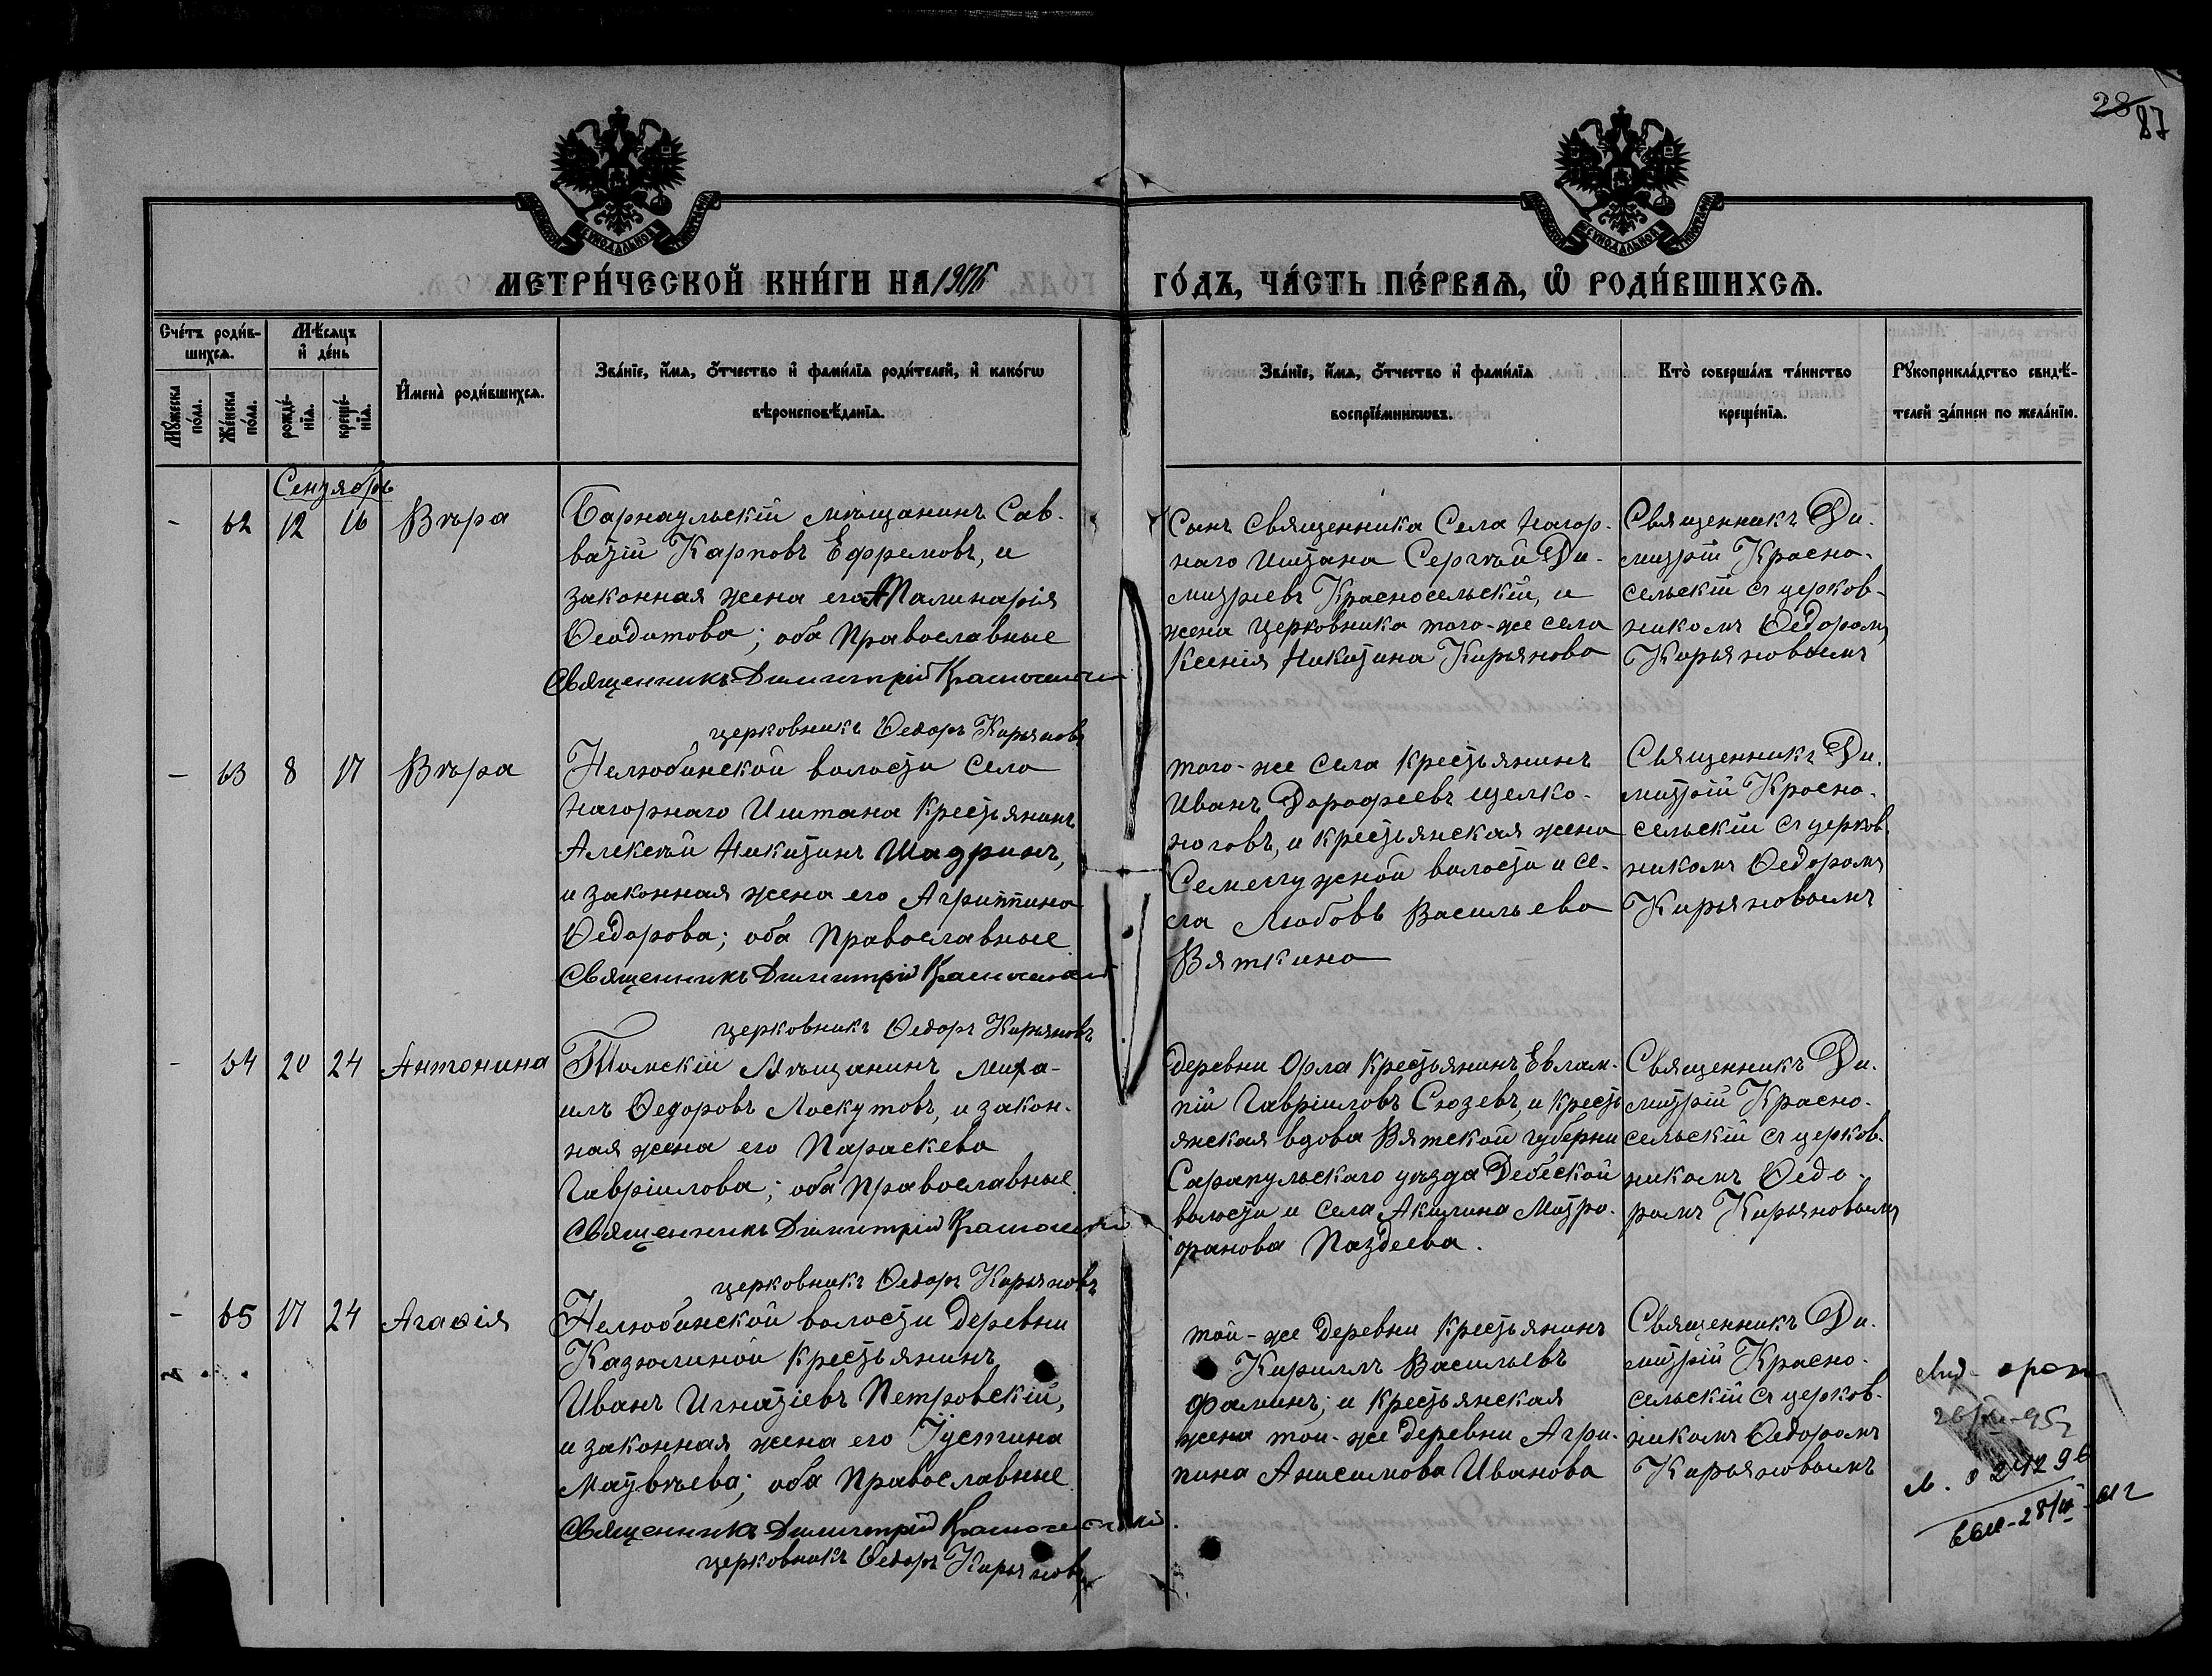 28 87
МЕТРИ́ЧЕСКОЙ КНИ́ГИ НА 1906 ГО́ДЪ, ЧА́СТЬ ПЕ́РВАѦ, Ѡ҆ РОДИ́ВШИХСѦ.
Сче́тъ роди́в-
шихсѧ.
Мѣ́сѧцъ
и҆ де́нь
Мꙋ́жеска
по́ла.
Же́нска
по́ла.
рожде́-
нїѧ.
креще́-
нїѧ.
И҆мена̀ роди́вшихсѧ.
Зва́нїе, и҆́мѧ, ѻ҆́тчество и҆ фами́лїѧ роди́телей, и҆ како́гѡ
вѣроисповѣ́данїѧ.
Зва́нїе, и҆́мѧ, ѻ҆́тчество и҆ фами́лїѧ
воспрїе́мникѡвъ.
Кто̀ соверша́лъ та́инство
креще́нїѧ.
Рꙋкоприкла́дство свидѣ́-
телей за́писи по жела́нїю.
Сентябрь
- 62 12 16 Вѣра
Барнаульскій мѣщанинъ Сав-
ватій Карповъ Ефремовъ, и
законная жена его Апалинарія
Ѳеодотова; оба Православные
Священникъ Димитрій Красносельскій
церковникъ Ѳедоръ Кирьяновъ
Сынъ Священника Села Нагор-
наго Иштана Сергѣй Ди-
митріевъ Красносельскій, и
жена церковника того-же села
Ксенія Никитина Кирьянова
Священникъ Ди-
митрій Красно-
сельскій съ церков-
никомъ Ѳедоромъ
Кирьяновымъ
- 63 8 17 Вѣра
Нелюбинской волости Села
Нагорнаго Иштана Крестьянинъ
Алексѣй Никитинъ Шадринъ,
и законная жена его Агриппина
Ѳедорова; оба Православные
Священникъ Димитрій Красносельскій
церковникъ Ѳедоръ Кирьяновъ
того-же Села Крестьянинъ
Иванъ Дорофеевъ Щелко-
ноговъ, и крестьянская жена
Семелужной волости и се-
ла Любовь Васильева
Вяткина
Священникъ Ди-
митрій Красно-
сельскій съ церков-
никомъ Ѳедоромъ
Кирьяновымъ
- 64 20 24 Антонина
Томскій Мѣщанинъ Миха-
илъ Ѳедоровъ Лоскутовъ, и закон-
ная жена его Параскева
Гавріилова; оба Православные
Священникъ Димитрій Красносельскій
церковникъ Ѳедоръ Кирьяновъ
Деревни Орла Крестьянинъ Евлам-
пій Гавріиловъ Сюзевъ, и Кресть
янская вдова Вятской губерни
Сарапульскаго уѣзда Дебеской
волости и Села Акилина Митро-
фанова Паздеева.
Священникъ Ди-
митрій Красно-
сельскій съ церков-
никомъ Ѳедо-
ромъ Кирьяновымъ
- 65 17 24 Агаѳія
Нелюбинской волости Деревни
Казюлиной Крестьянинъ
Иванъ Игнатіевъ Петровскій,
и законная жена его Іустина
Матвѣева; оба Православные
Священникъ Димитрій Красносельскій
церковникъ Ѳедоръ Кирьяновъ
той-же Деревни Крестьянинъ
Кириллъ Васильевъ
Фаминъ; и Крестьянская
жена той-же Деревни Агри-
пина Анисимова Иванова
Священникъ Ди-
митрій Красно-
сельскій съ церков-
никомъ Ѳедоромъ
Кирьяновымъ